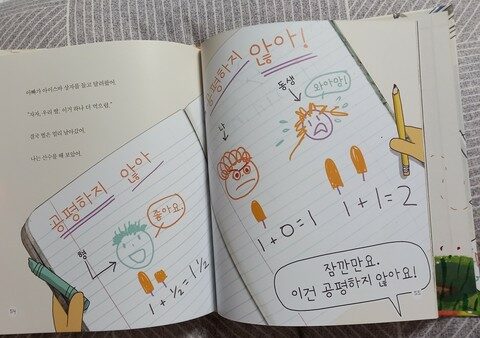 아빠가 아이스바 상자를 들고 말하셨어.
"자자, 우리 딸, 이거 하나 더 먹으렴."
결국 벌은 멀리 날아갔어.
나는 산수를 해 보았어.
공평하지 않아
좋아요!
형
1 + ½ = 1 ½
54
공평하지 않아!
동생
와아앙!
나
1+0=1
1+1=2
잠깐만요.
이건 공평하지 않아요!
55